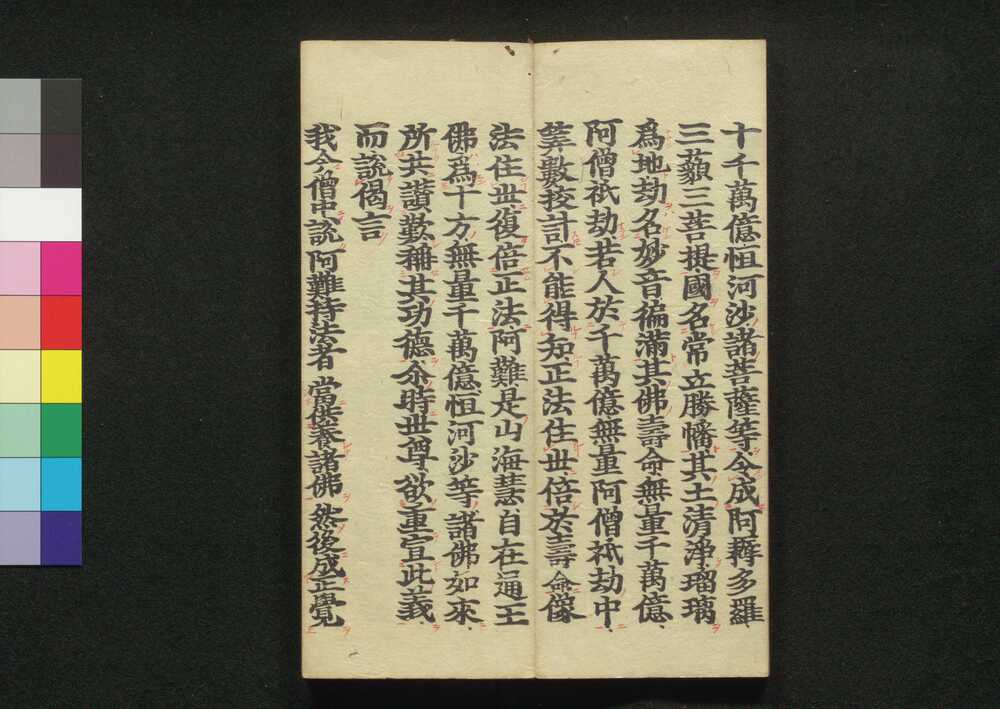 十千萬億恒河沙諸菩薩等令成阿耨多羅
三藐三菩提國名常立勝幡其土清淨瑠璃
爲地劫名妙音徧滿其佛壽命無量千萬億
阿僧祇劫若人於千萬億無量阿僧祇劫中
筭數挍計不能得知正法住丗倍於壽命像
法住丗復倍正法阿難是山海慧自在通王
佛爲十方無量千萬億恒河沙等諸佛如來
所共讃歎稱其功德尒時丗尊欲重宣此義
而說偈言
我今僧中說 阿難持法者 當供養諸佛 然後成正覺